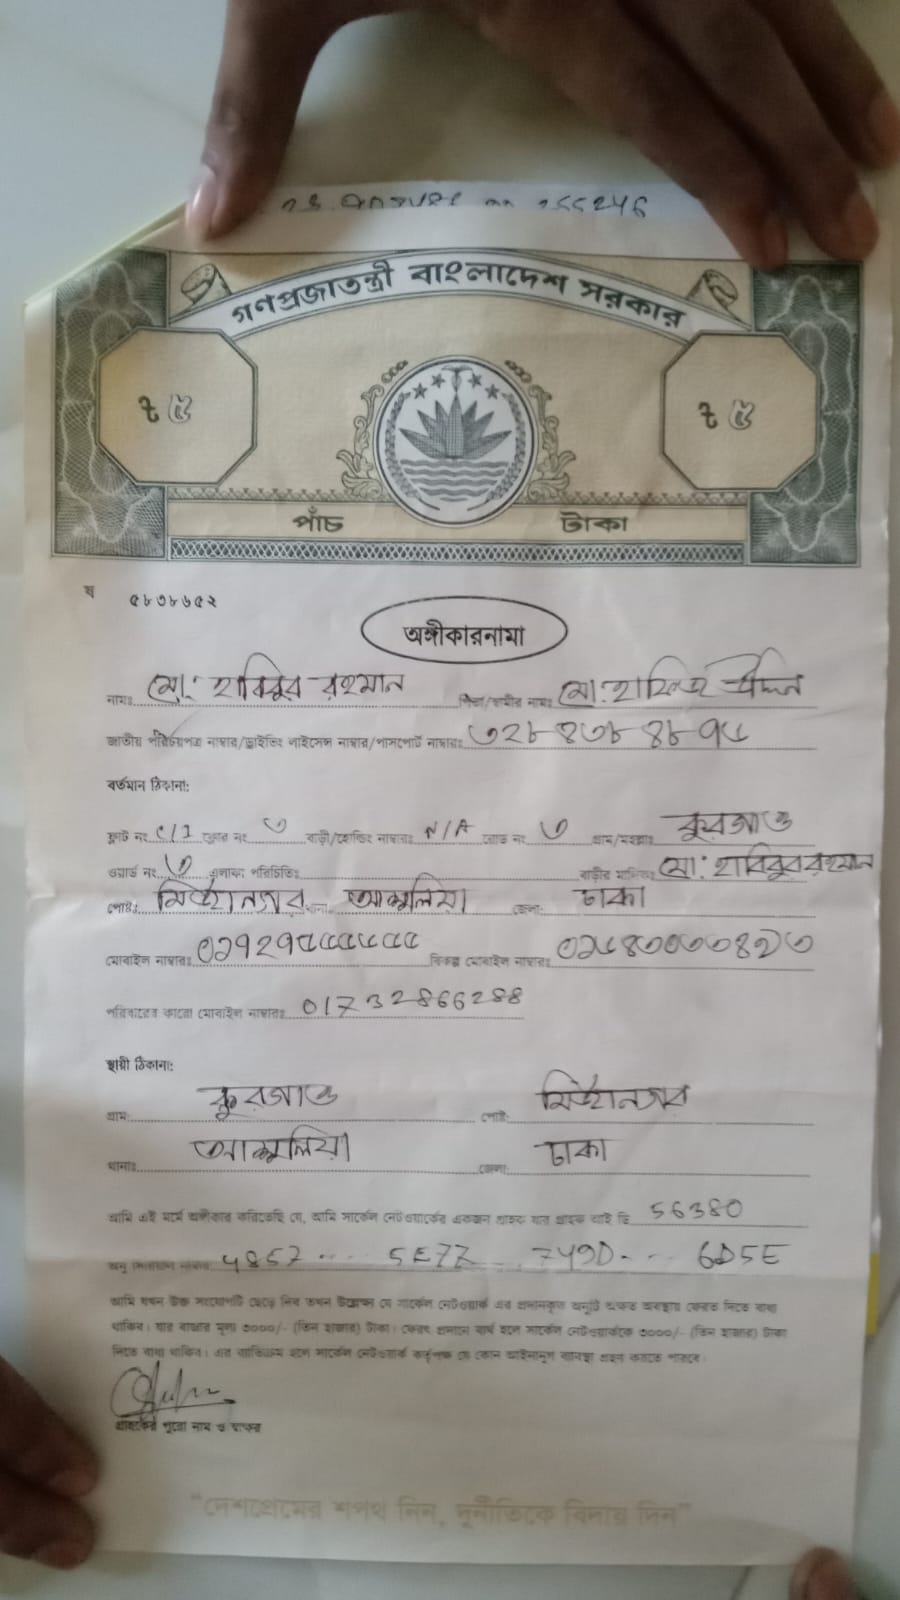 255246
গণপ্রজাতন্ত্রী বাংলাদেশ সরকার
৳ ৫ ৳ ৫
পাঁচ টাকা
ষ ৫৮৩৮৬৫২
অঙ্গীকারনামা
নামঃ মো: হাবিবুর রহমান পিতা/স্বামীর নামঃ মো: হাফিজ উদ্দিন
জাতীয় পরিচয়পত্র নাম্বার/ড্রাইভিং লাইসেন্স নাম্বার/পাসপোর্ট নাম্বারঃ
বর্তমান ঠিকানা:
ফ্লাট নং ফ্লোর নং ৩ বাড়ী/হোল্ডিং নাম্বারঃ N/A রোড নং ৩ গ্রাম/মহল্লাঃ কুরগাও
ওয়ার্ড নং ৩ এলাকা পরিচিতিঃ বাড়ীর মালিকঃ মো: হাবিবুর রহমান
পোষ্টঃ মির্জানগর থানাঃ আশুলিয়া জেলা: ঢাকা
মোবাইল নাম্বারঃ ০১৭২৭৫৫৫৫৫৫ বিকল্প মোবাইল নাম্বারঃ
পরিবারের কারো মোবাইল নাম্বারঃ 01732866288
স্থায়ী ঠিকানা:
গ্রামঃ কুরগাও পোষ্ট: মির্জানগর
থানাঃ আশুলিয়া জেলা: ঢাকা
আমি এই মর্মে অঙ্গীকার করিতেছি যে, আমি সার্কেল নেটওয়ার্কের একজন গ্রাহক যার গ্রাহক আই ডি 56380
অনু সিরিয়াল নাম্বার 4857 .... 5E77 749D .... 6D5E
আমি যখন উক্ত সংযোগটি ছেড়ে দিব তখন উল্লেখ্য যে সার্কেল নেটওয়ার্ক এর প্রদানকৃত অনুটি অক্ষত অবস্থায় ফেরত দিতে বাধ্য
থাকিব। যার বাজার মূল্য ৩০০০/- (তিন হাজার) টাকা। ফেরৎ প্রদানে ব্যর্থ হলে সার্কেল নেটওয়ার্ককে ৩০০০/- (তিন হাজার) টাকা
দিতে বাধ্য থাকিব। এর ব্যতিক্রম হলে সার্কেল নেটওয়ার্ক কর্তৃপক্ষ যে কোন আইনানুগ ব্যবস্থা গ্রহন করতে পারবে।
গ্রাহকের পুরো নাম ও স্বাক্ষর
"দেশপ্রেমের শপথ নিন, দুর্নীতিকে বিদায় দিন"